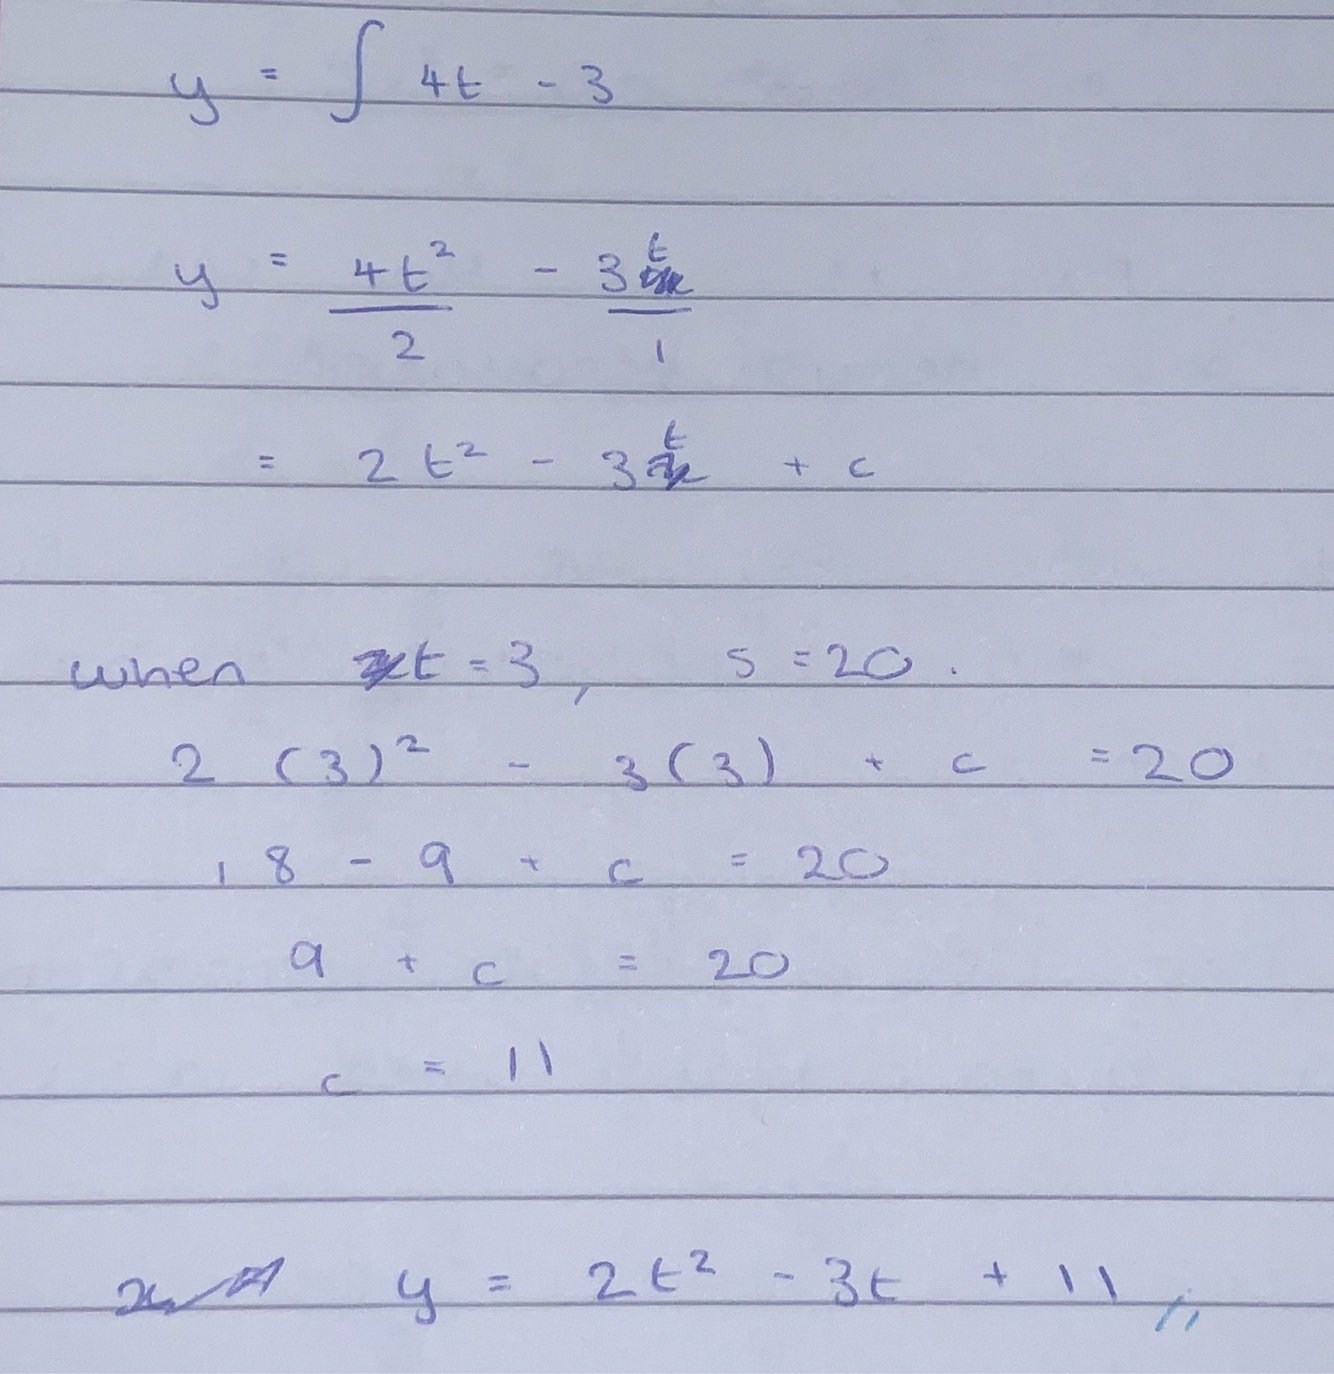 y = ∫ 4t - 3
y = 4t²/2 - 3t/1
= 2t² - 3t + c
when t = 3, s = 20.
2 (3)² - 3(3) + c = 20
18 - 9 + c = 20
9 + c = 20
c = 11
y = 2t² - 3t + 11